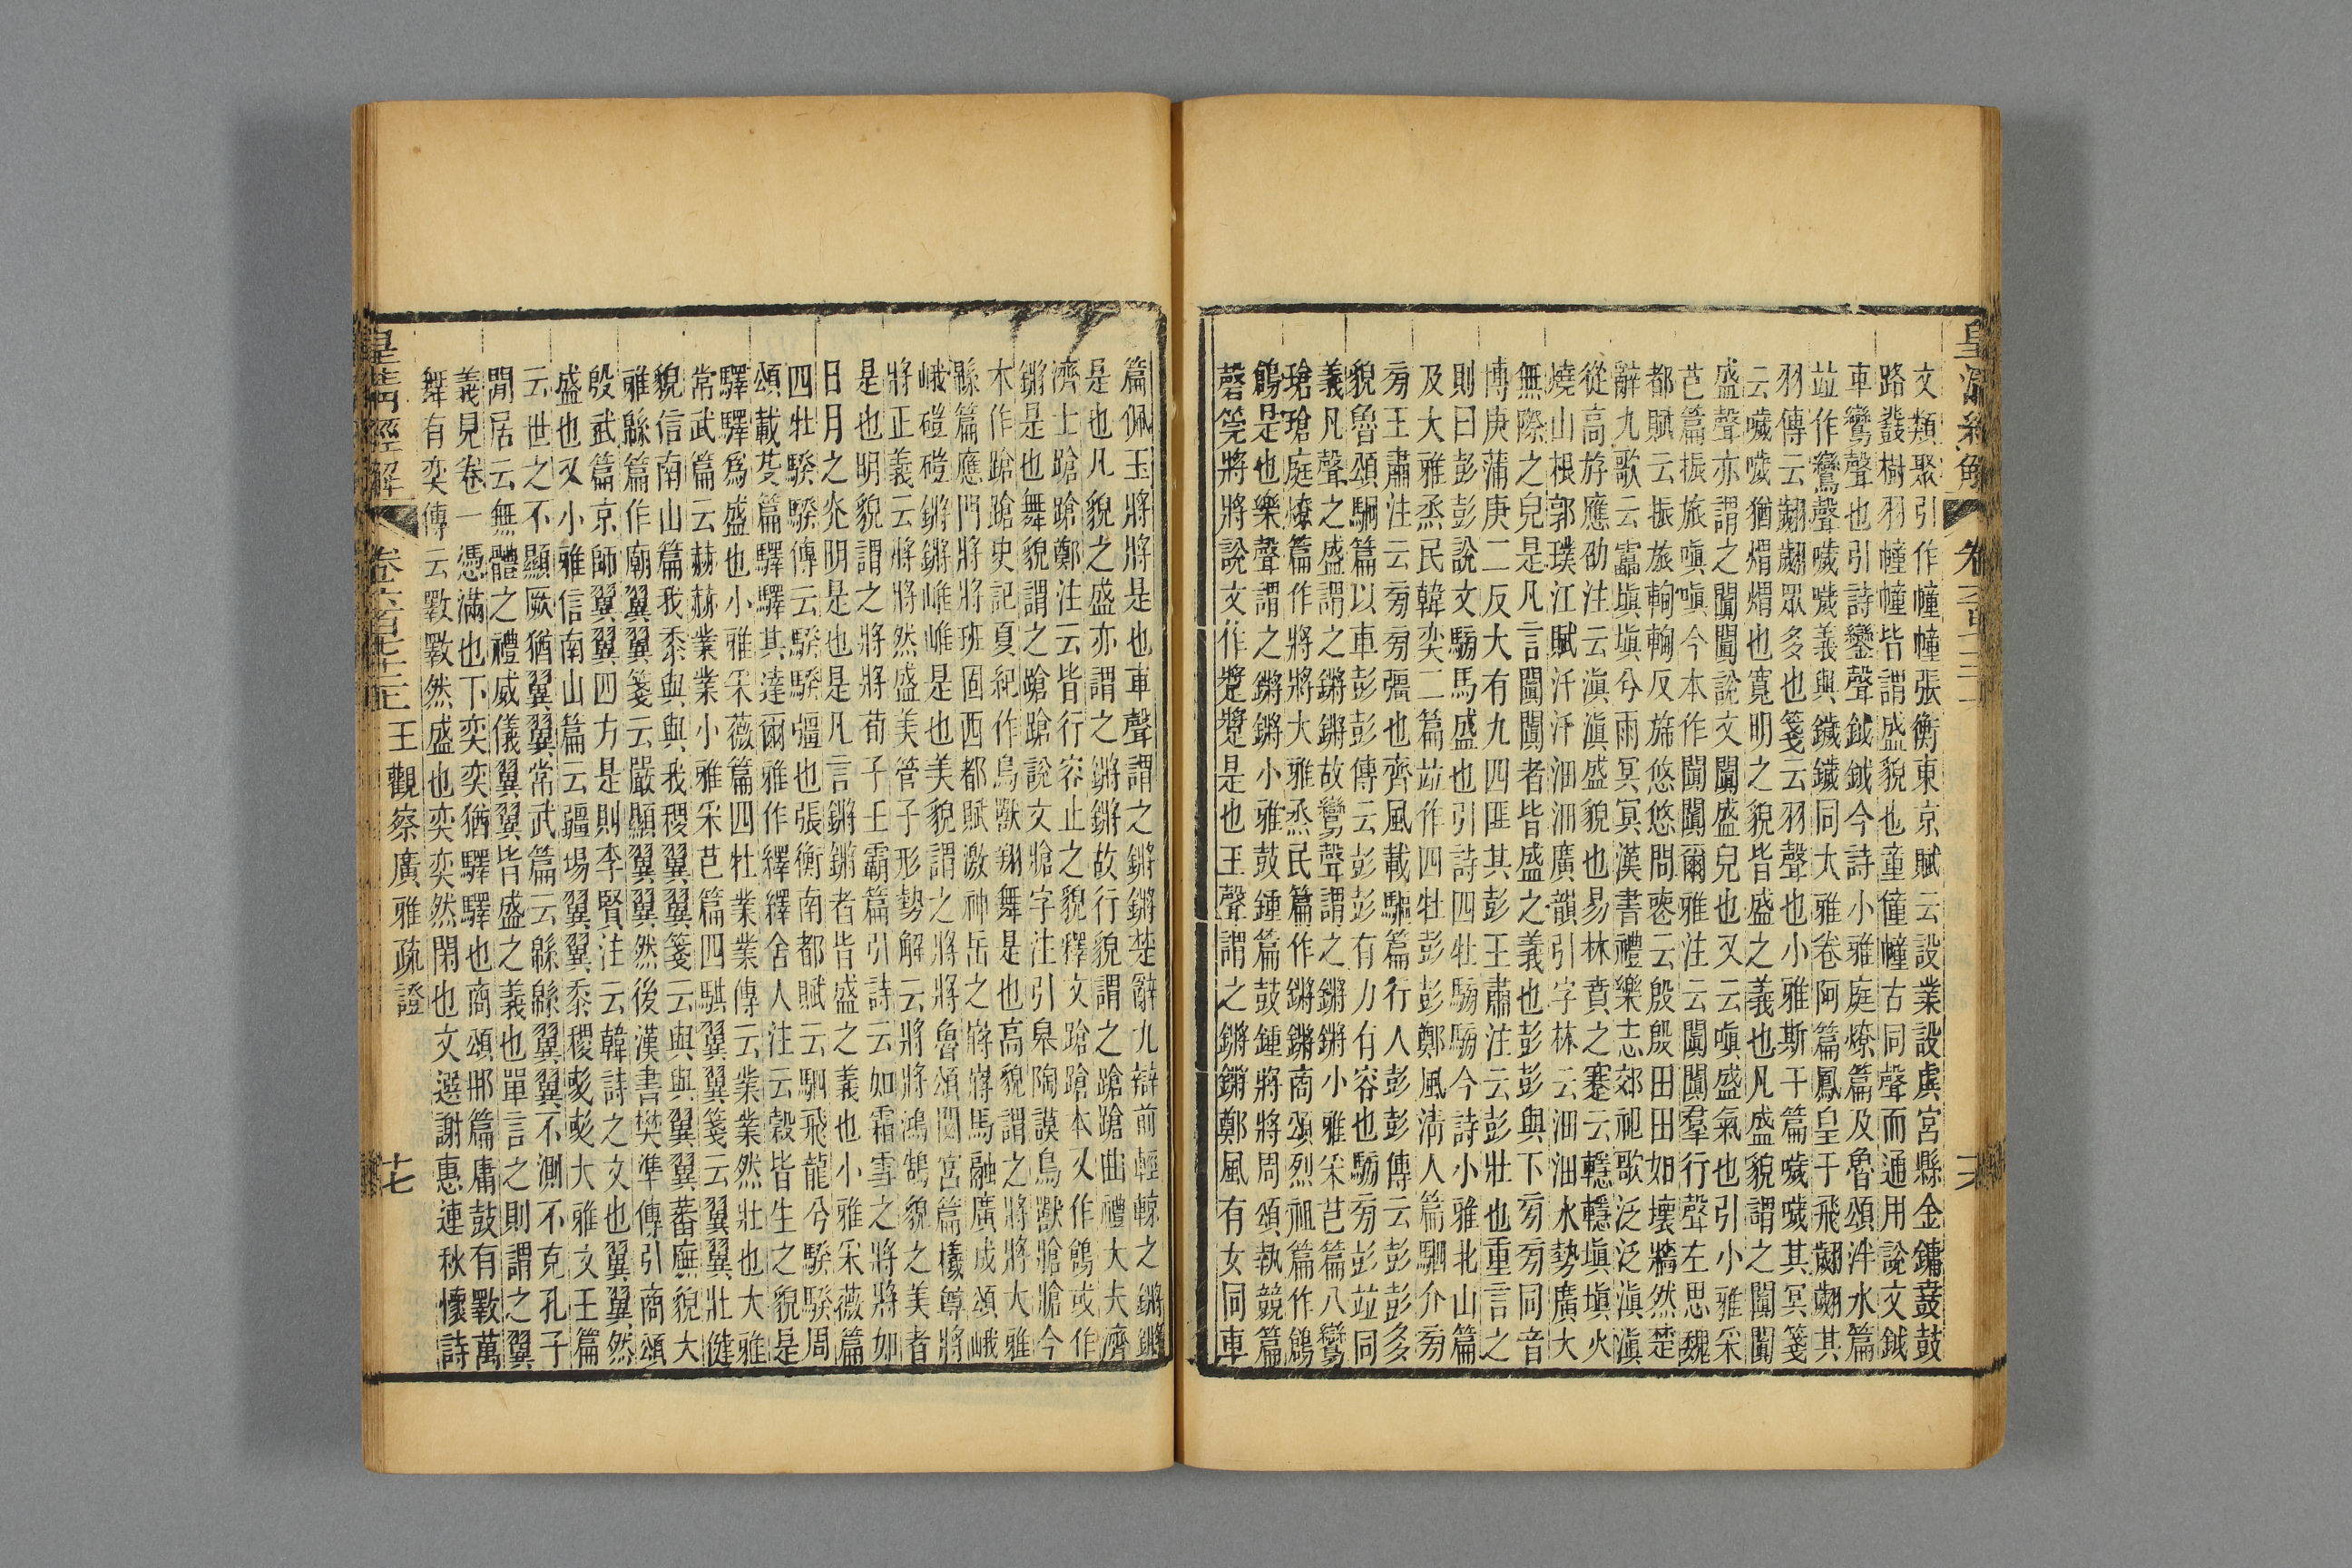 文類聚引作幢幢張衡東京賦云設業設虡宮縣金鏞鼖鼓
路鼗樹羽幢幢皆謂盛貌也童僮幢古同聲而通用說文鉞
車鸞聲也引詩鑾聲鉞鉞今詩小雅庭燎篇及魯頌泮水篇
竝作鸞聲噦噦義與鐬鐬同大雅卷阿篇鳳皇于飛翽翽其
羽傳云翽翽眾多也箋云羽聲也小雅斯干篇噦噦其冥箋
云噦噦猶煟煟也寬明之貌皆盛之義也凡盛貌謂之闐闐
盛聲亦謂之闐闐說文闐盛皃也又云嗔盛氣也引小雅采
芑篇振旅嗔嗔今本作闐闐爾雅注云闐闐羣行聲左思魏
都賦云振旅輷輷反旆悠悠問蔥云殷殷田田如壞牆然楚
辭九歌云靁塡塡兮雨冥冥漢書禮樂志郊祀歌泛泛滇滇
從高斿應劭注云滇滇盛貌也易林賁之蹇云轞轞塡塡火
燒山根郭璞江賦汗汗沺沺廣韻引字林云沺沺水勢廣大
無際之皃是凡言闐闐者皆盛之義也彭彭與下㫄㫄同音
博庚蒲庚二反大有九四匪其彭王肅注云彭壯也重言之
則曰彭彭說文騯馬盛也引詩四牡騯騯今詩小雅北山篇
及大雅烝民韓奕二篇竝作四牡彭彭鄭風清人篇駟介㫄
㫄王肅注云㫄㫄彊也齊風載驅篇行人彭彭傳云彭彭多
貌魯頌駉篇以車彭彭傳云彭彭有力有容也騯㫄彭竝同
義凡聲之盛謂之鏘鏘故鸞聲謂之鏘鏘小雅采芑篇八鸞
瑲瑲庭燎篇作將將大雅烝民篇作鏘鏘商頌烈祖篇作鶬
鶬是也樂聲謂之鏘鏘小雅鼓鍾篇鼓鍾將將周頌執競篇
磬筦將將說文作躩躩是也王聲謂之鏘鏘鄭風有女同車
篇佩玉將將是也車聲謂之鏘鏘楚辭九辯前輕輬之鏘鏘
是也凡貌之盛亦謂之鏘鏘故行貌謂之蹌蹌曲禮大夫濟
濟士蹌蹌鄭注云皆行容止之貌釋文蹌蹌本又作鶬或作
鏘是也舞貌謂之蹌蹌說文牄字注引皋陶謨鳥獸牄牄今
本作蹌蹌史記夏紀作鳥獸翔舞是也高貌謂之將將大雅
緜篇應門將將班固西都賦激神岳之嶈嶈馬融廣成頌峨
峨磑磑鏘鏘嶉嶉是也美貌謂之將將魯頌閟宮篇犧尊將
將正義云將將然盛美管子形勢解云將將鴻鵠貌之美者
是也明貌謂之將將荀子王霸篇引詩云如霜雪之將將如
日月之光明是也是凡言鏘鏘者皆盛之義也小雅采薇篇
四牡騤騤傳云騤騤彊也張衡南都賦云駟飛龍兮騤騤周
頌載芟篇驛驛其達爾雅作繹繹舍人注云穀皆生之貌是
驛驛爲盛也小雅采薇篇四牡業業傳云業業然壯也大雅
常武篇云赫赫業業小雅采芑篇四騏翼翼箋云翼翼壯健
貌信南山篇我黍與與我稷翼翼箋云與與翼翼蕃廡貌大
雅緜篇作廟翼翼箋云嚴顯翼翼然後漢書樊準傳引商頌
殷武篇京師翼翼四方是則李賢注云韓詩之文也翼翼然
盛也又小雅信南山篇云疆埸翼翼黍稷彧彧大雅文王篇
云世之不顯厥猶翼翼常武篇云緜緜翼翼不測不克孔子
閒居云無體之禮威儀翼翼皆盛之義也單言之則謂之翼
義見卷一憑滿也下奕奕猶驛驛也商頌那篇庸鼓有斁萬
舞有奕傳云斁斁然盛也奕奕然閑也文選謝惠連秋懷詩
皇清經解
王觀察廣雅疏證
十七